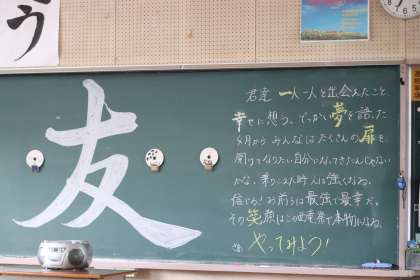 う
友
君達 一人一人と出会えたこと、
幸せに想う。でっかい夢を語った
4月から みんなは たくさんの扉を
開けて なりたい自分になれてきたんじゃない
かな。乗りこえた時 人は強くなる。
信じろ! お前らは最強で最幸だ。
その笑顔は
本物になる。
やってみよう!